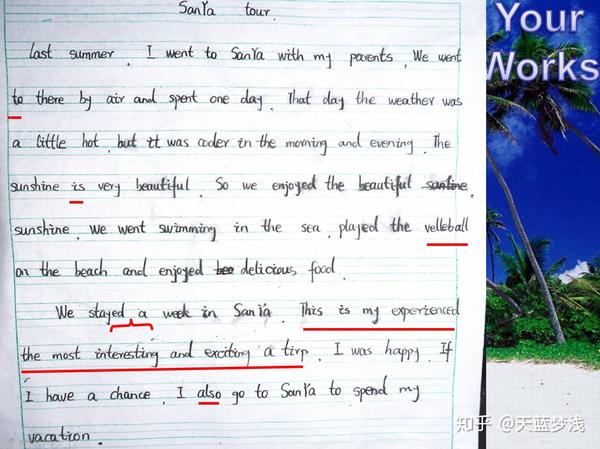 SanYa tour.
Your
Works
last summer, I went to SanYa with my parents. We went
to there by air and spent one day. That day the weather was
a little hot, but it was coder in the morning and evening. The
sunshine is very beautiful. So we enjoyed the beautiful
sunshine. We went swimming in the sea, played the velleball
on the beach and enjoyed delicious food.
We stayed a week in SanYa. This is my experienced
the most interesting and exciting a tirp. I was happy. If
I have a chance, I also go to SanYa to spend my
vacation.
知乎 @天蓝梦浅